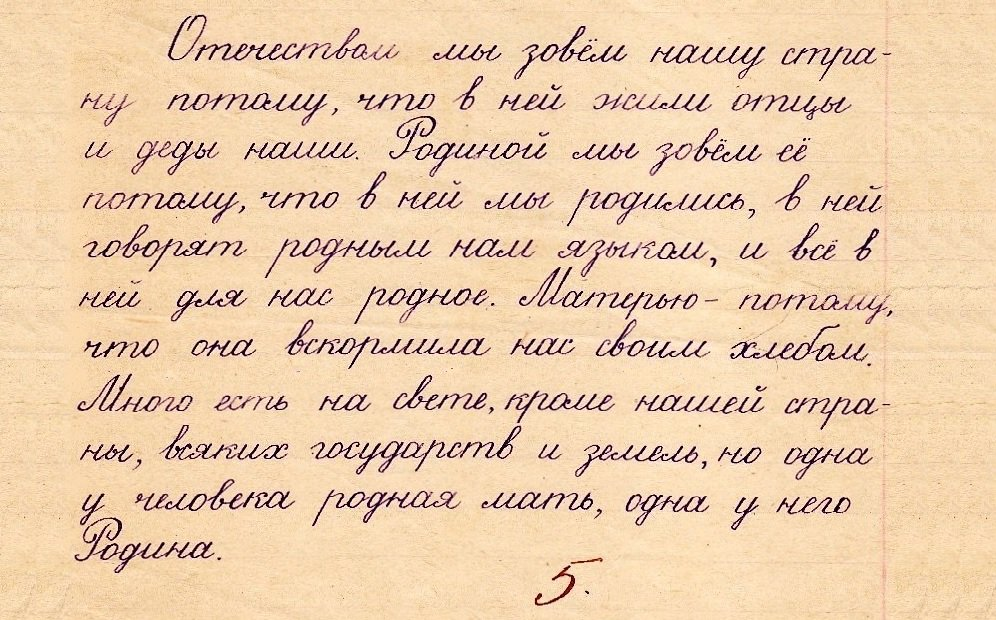 Отечеством мы зовём нашу стра-
ну потому, что в ней жили отцы
и деды наши. Родиной мы зовём её
потому, что в ней мы родились, в ней
говорят родным нам языком, и всё в
ней для нас родное. Матерью - потому,
что она вскормила нас своим хлебом.
Много есть на свете, кроме нашей стра-
ны, всяких государств и земель, но одна
у человека родная мать, одна у него
Родина.
5.